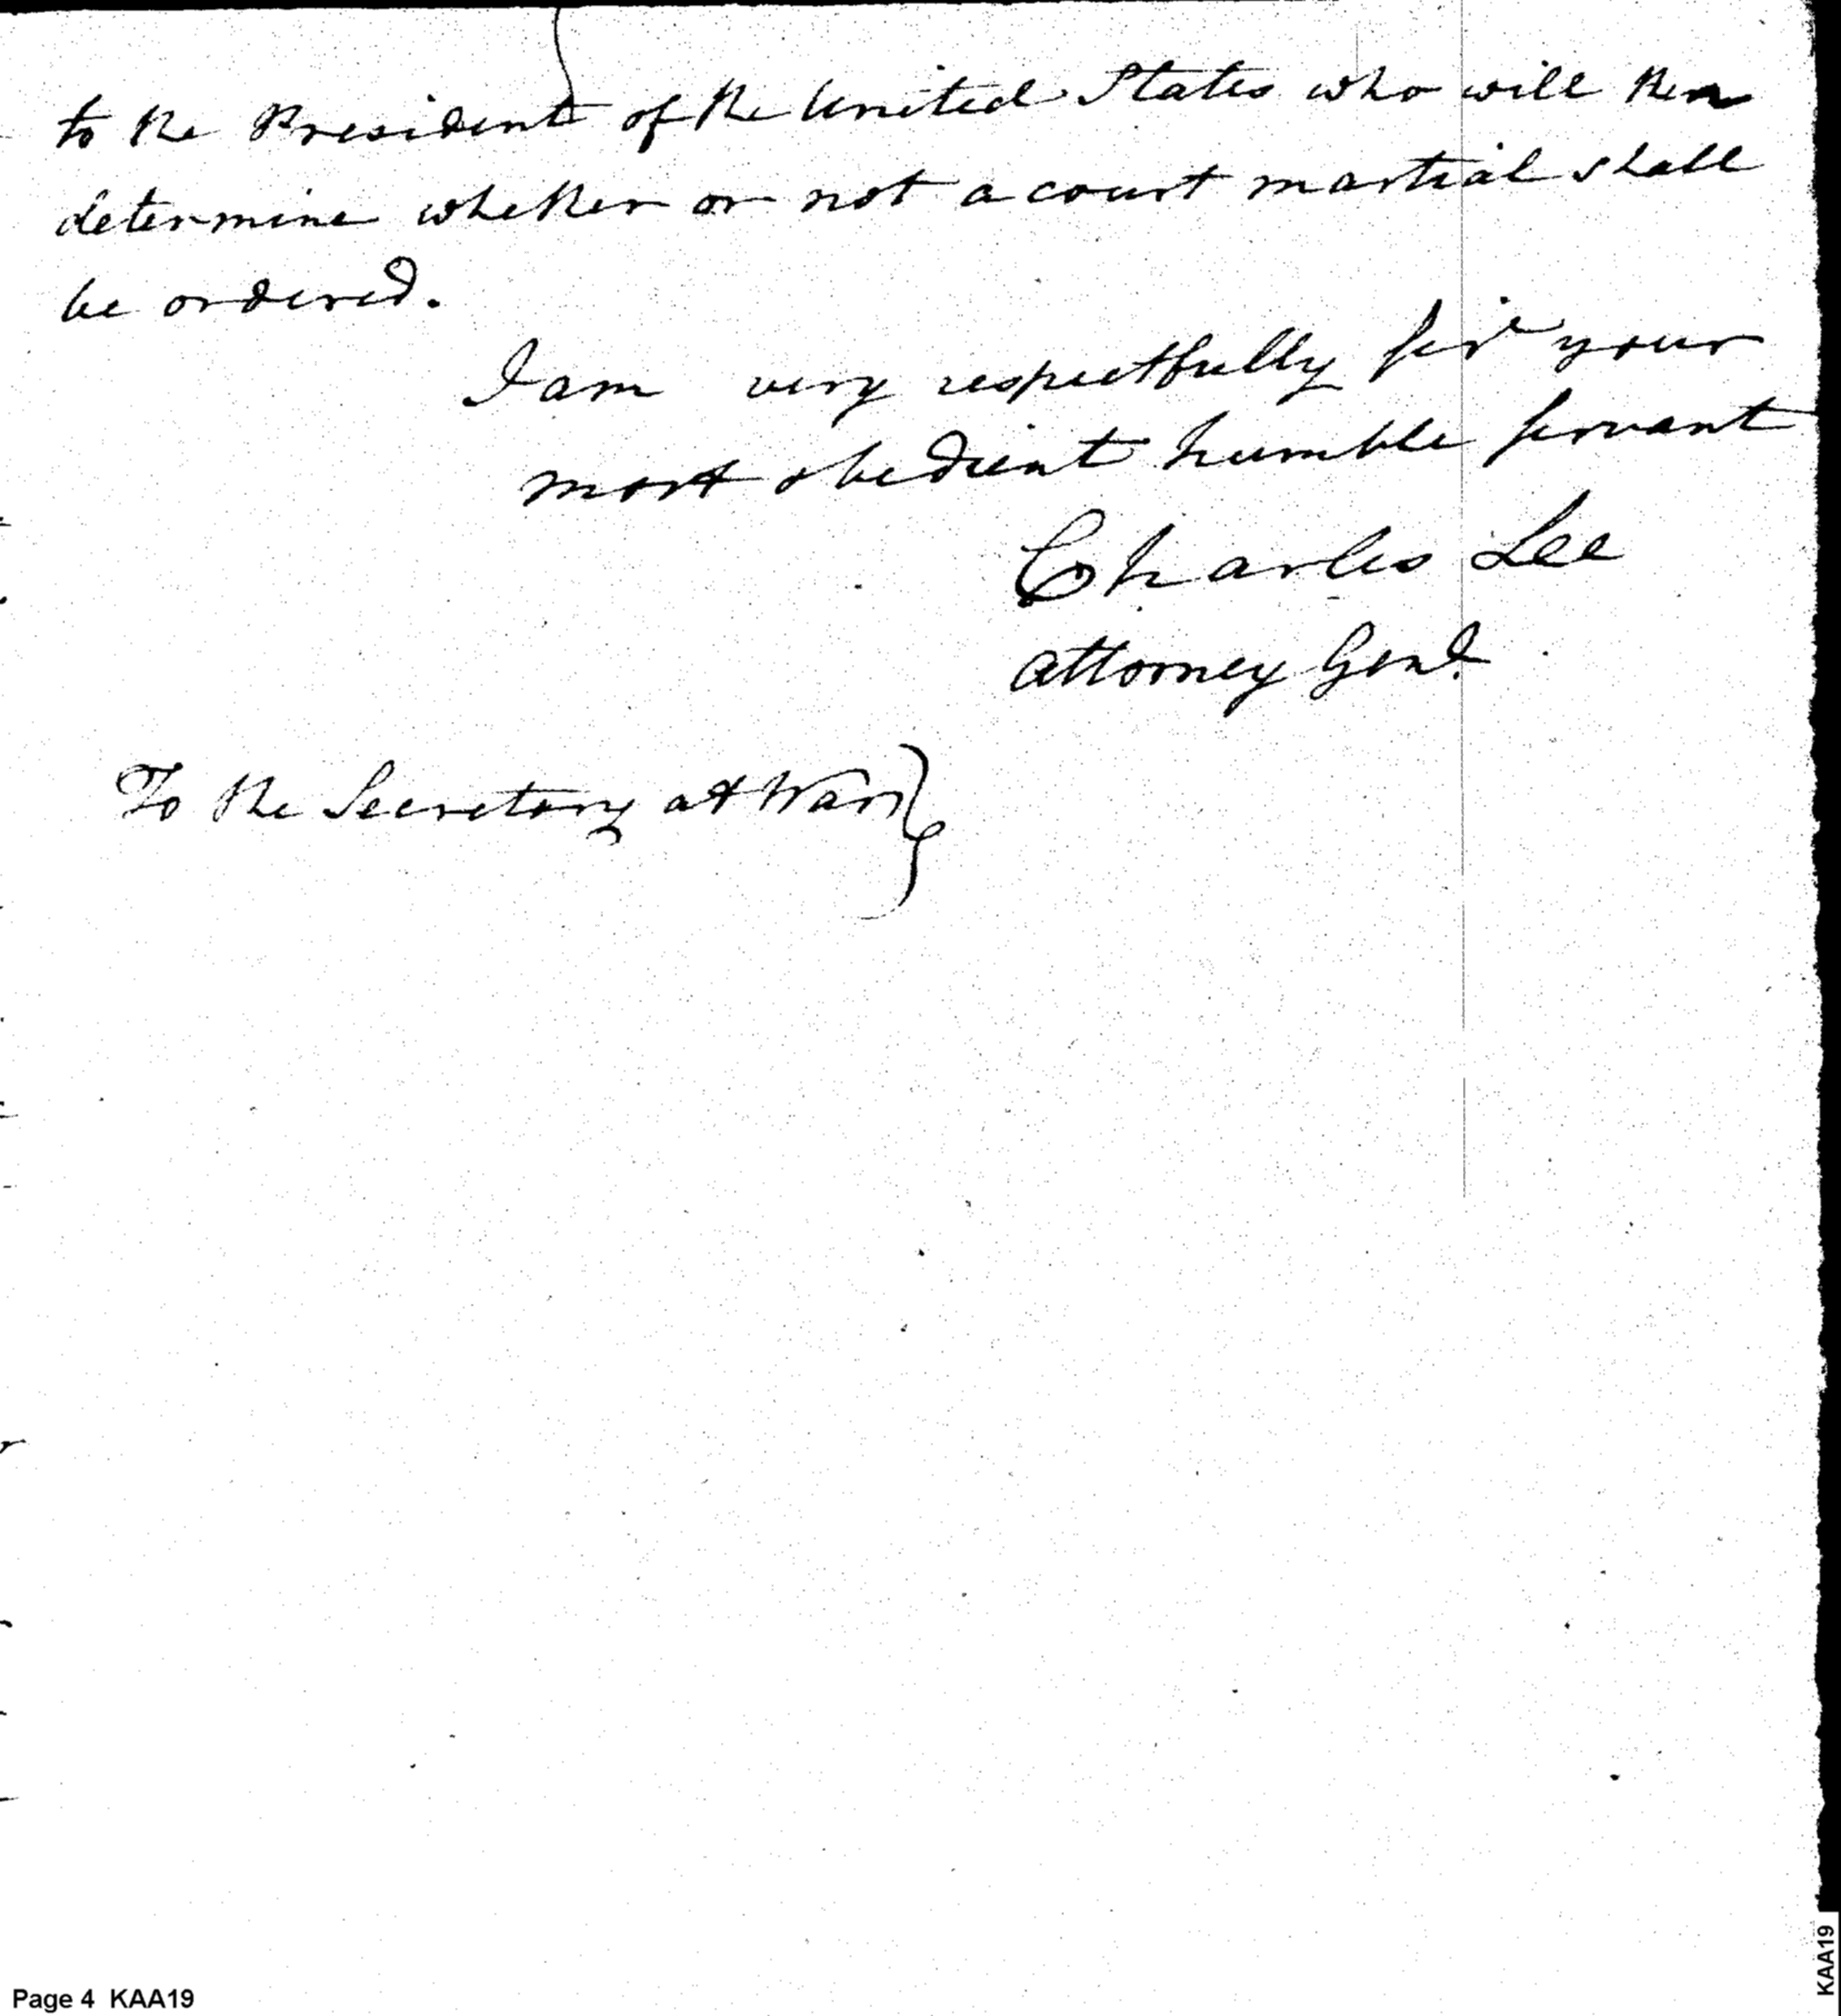 to the President of the United States who will then
determine whether or not a court martial shall
be ordered.
I am very respectfully sir your
most obedient humble servant
Charles Lee
attorney Genl.
To the Secretary at War }
Page 4 KAA19
KAA19